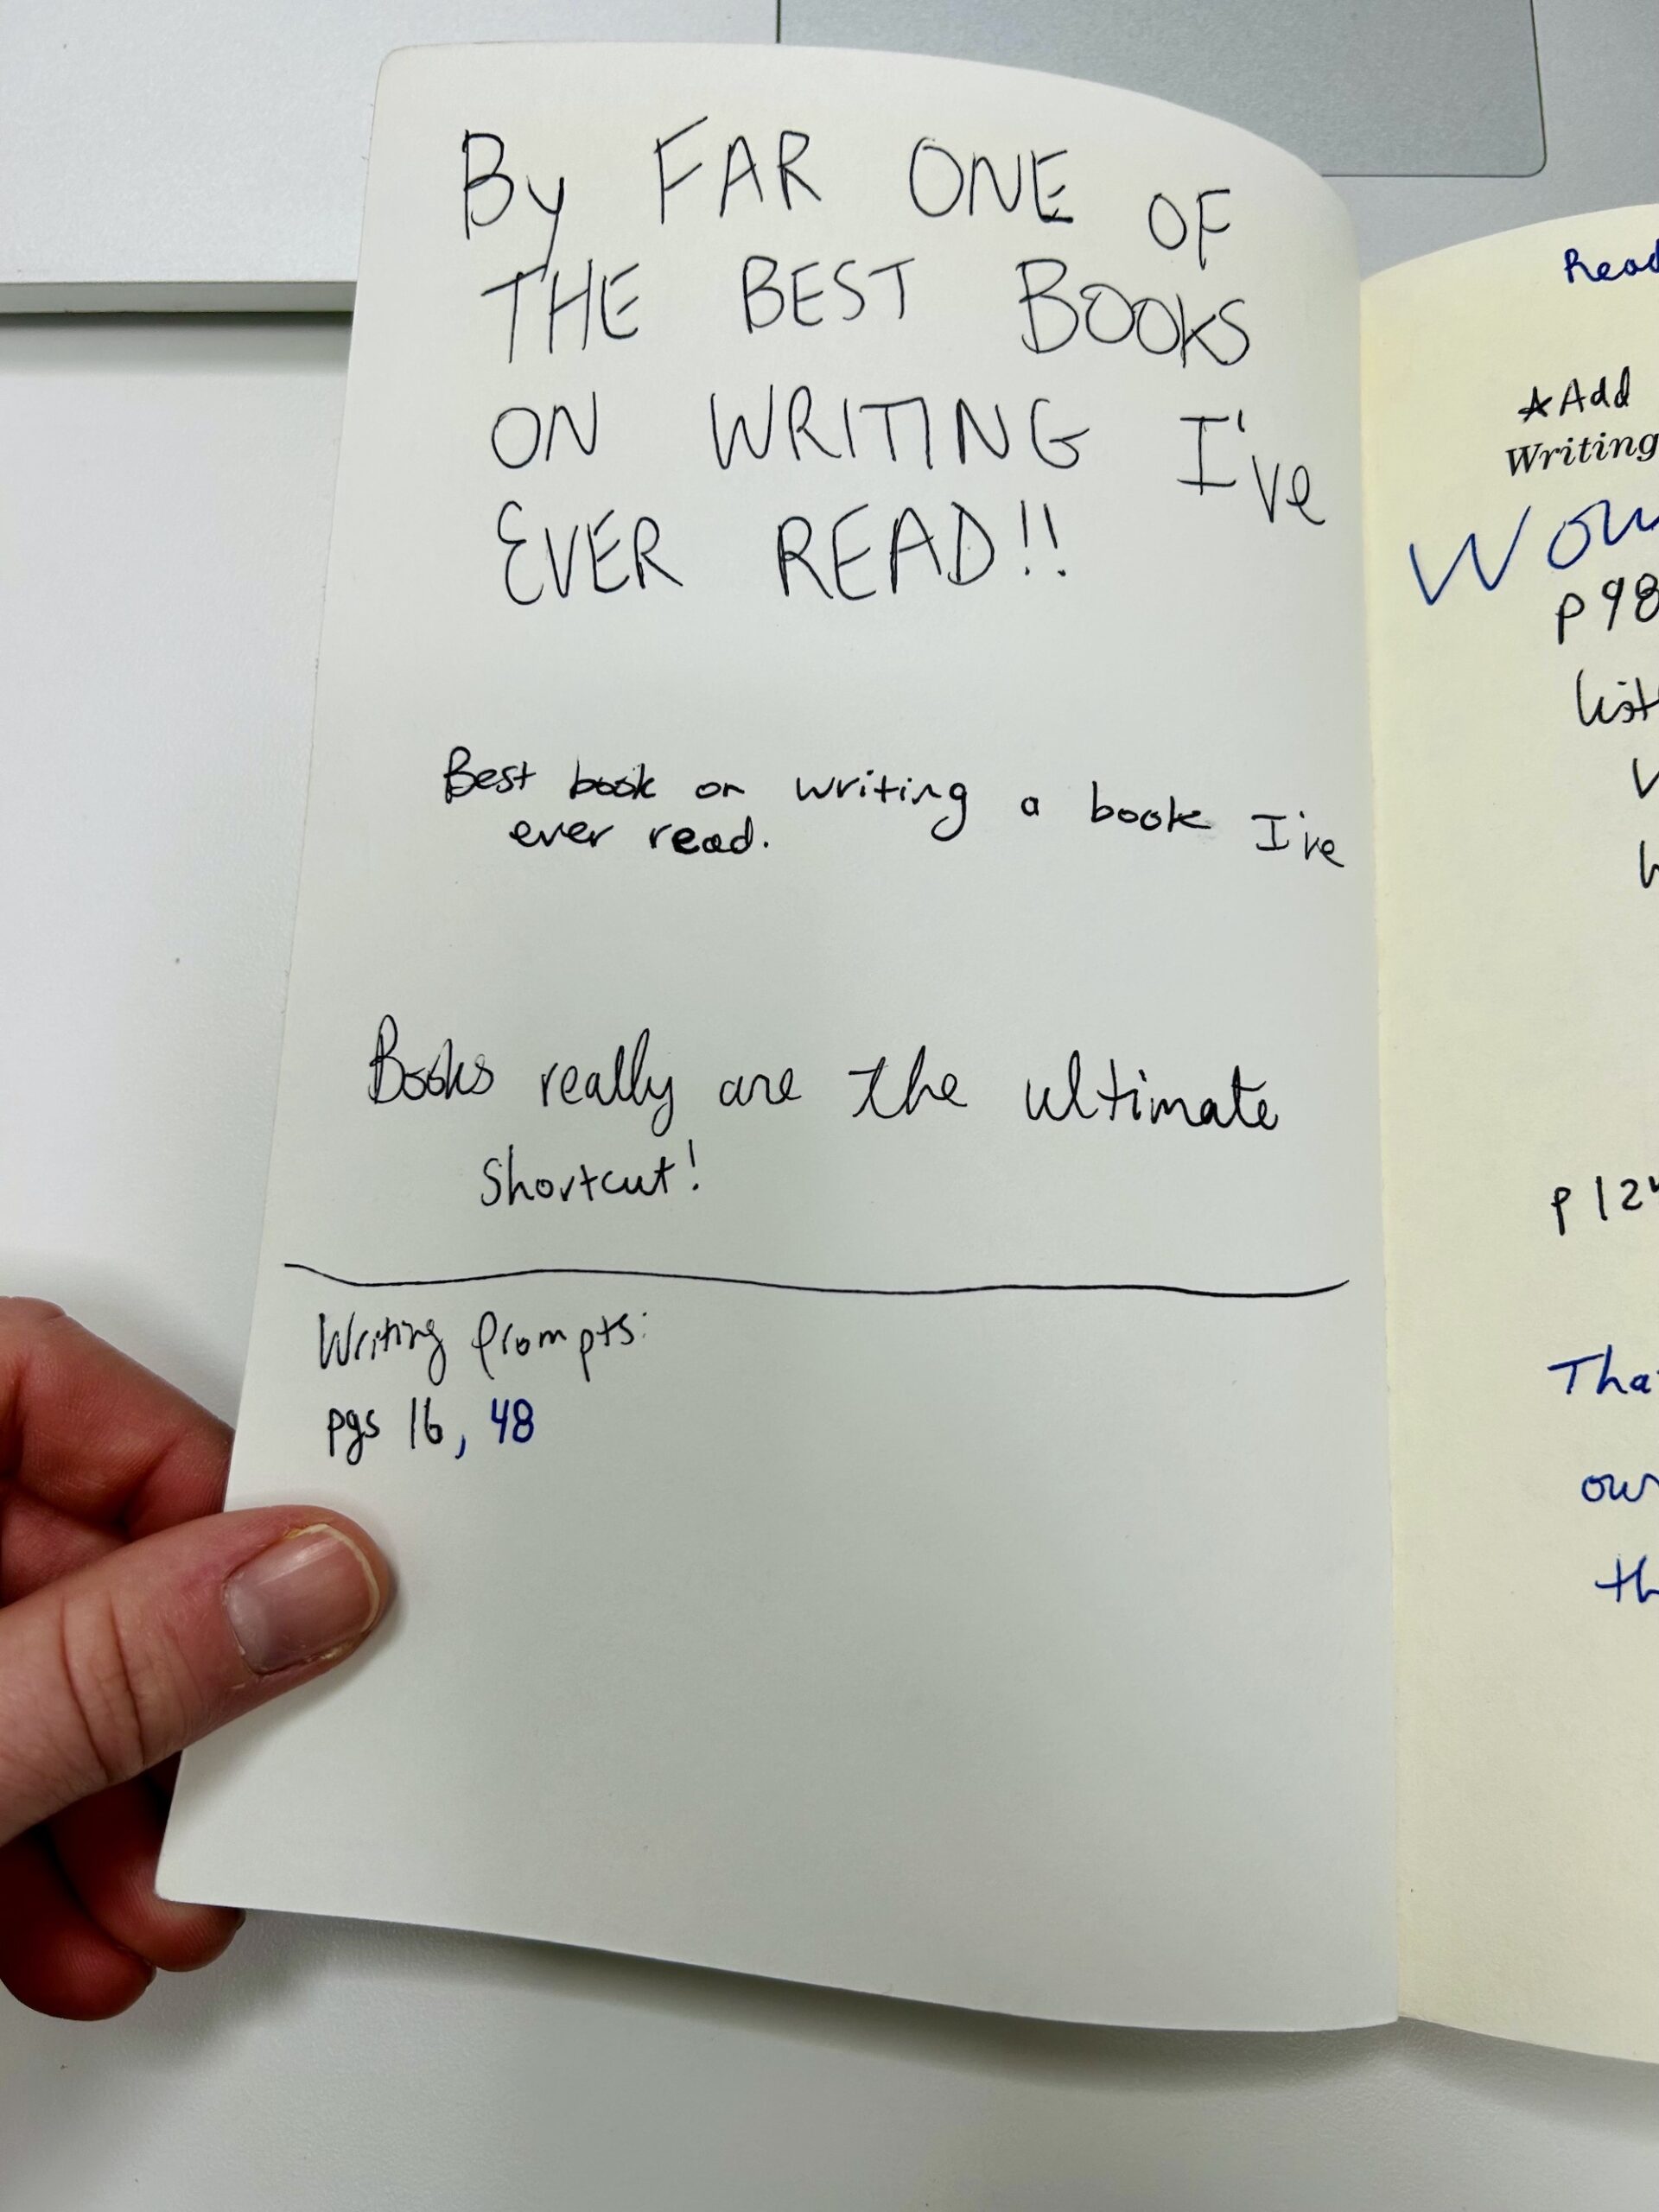 By FAR ONE OF
THE BEST BOOKS
ON WRITING I've
EVER READ!!
Best book on writing a book I've
ever read.
Books really are the ultimate
shortcut!
Writing Prompts:
pgs 16, 48
Read
★Add
Writing
p 98